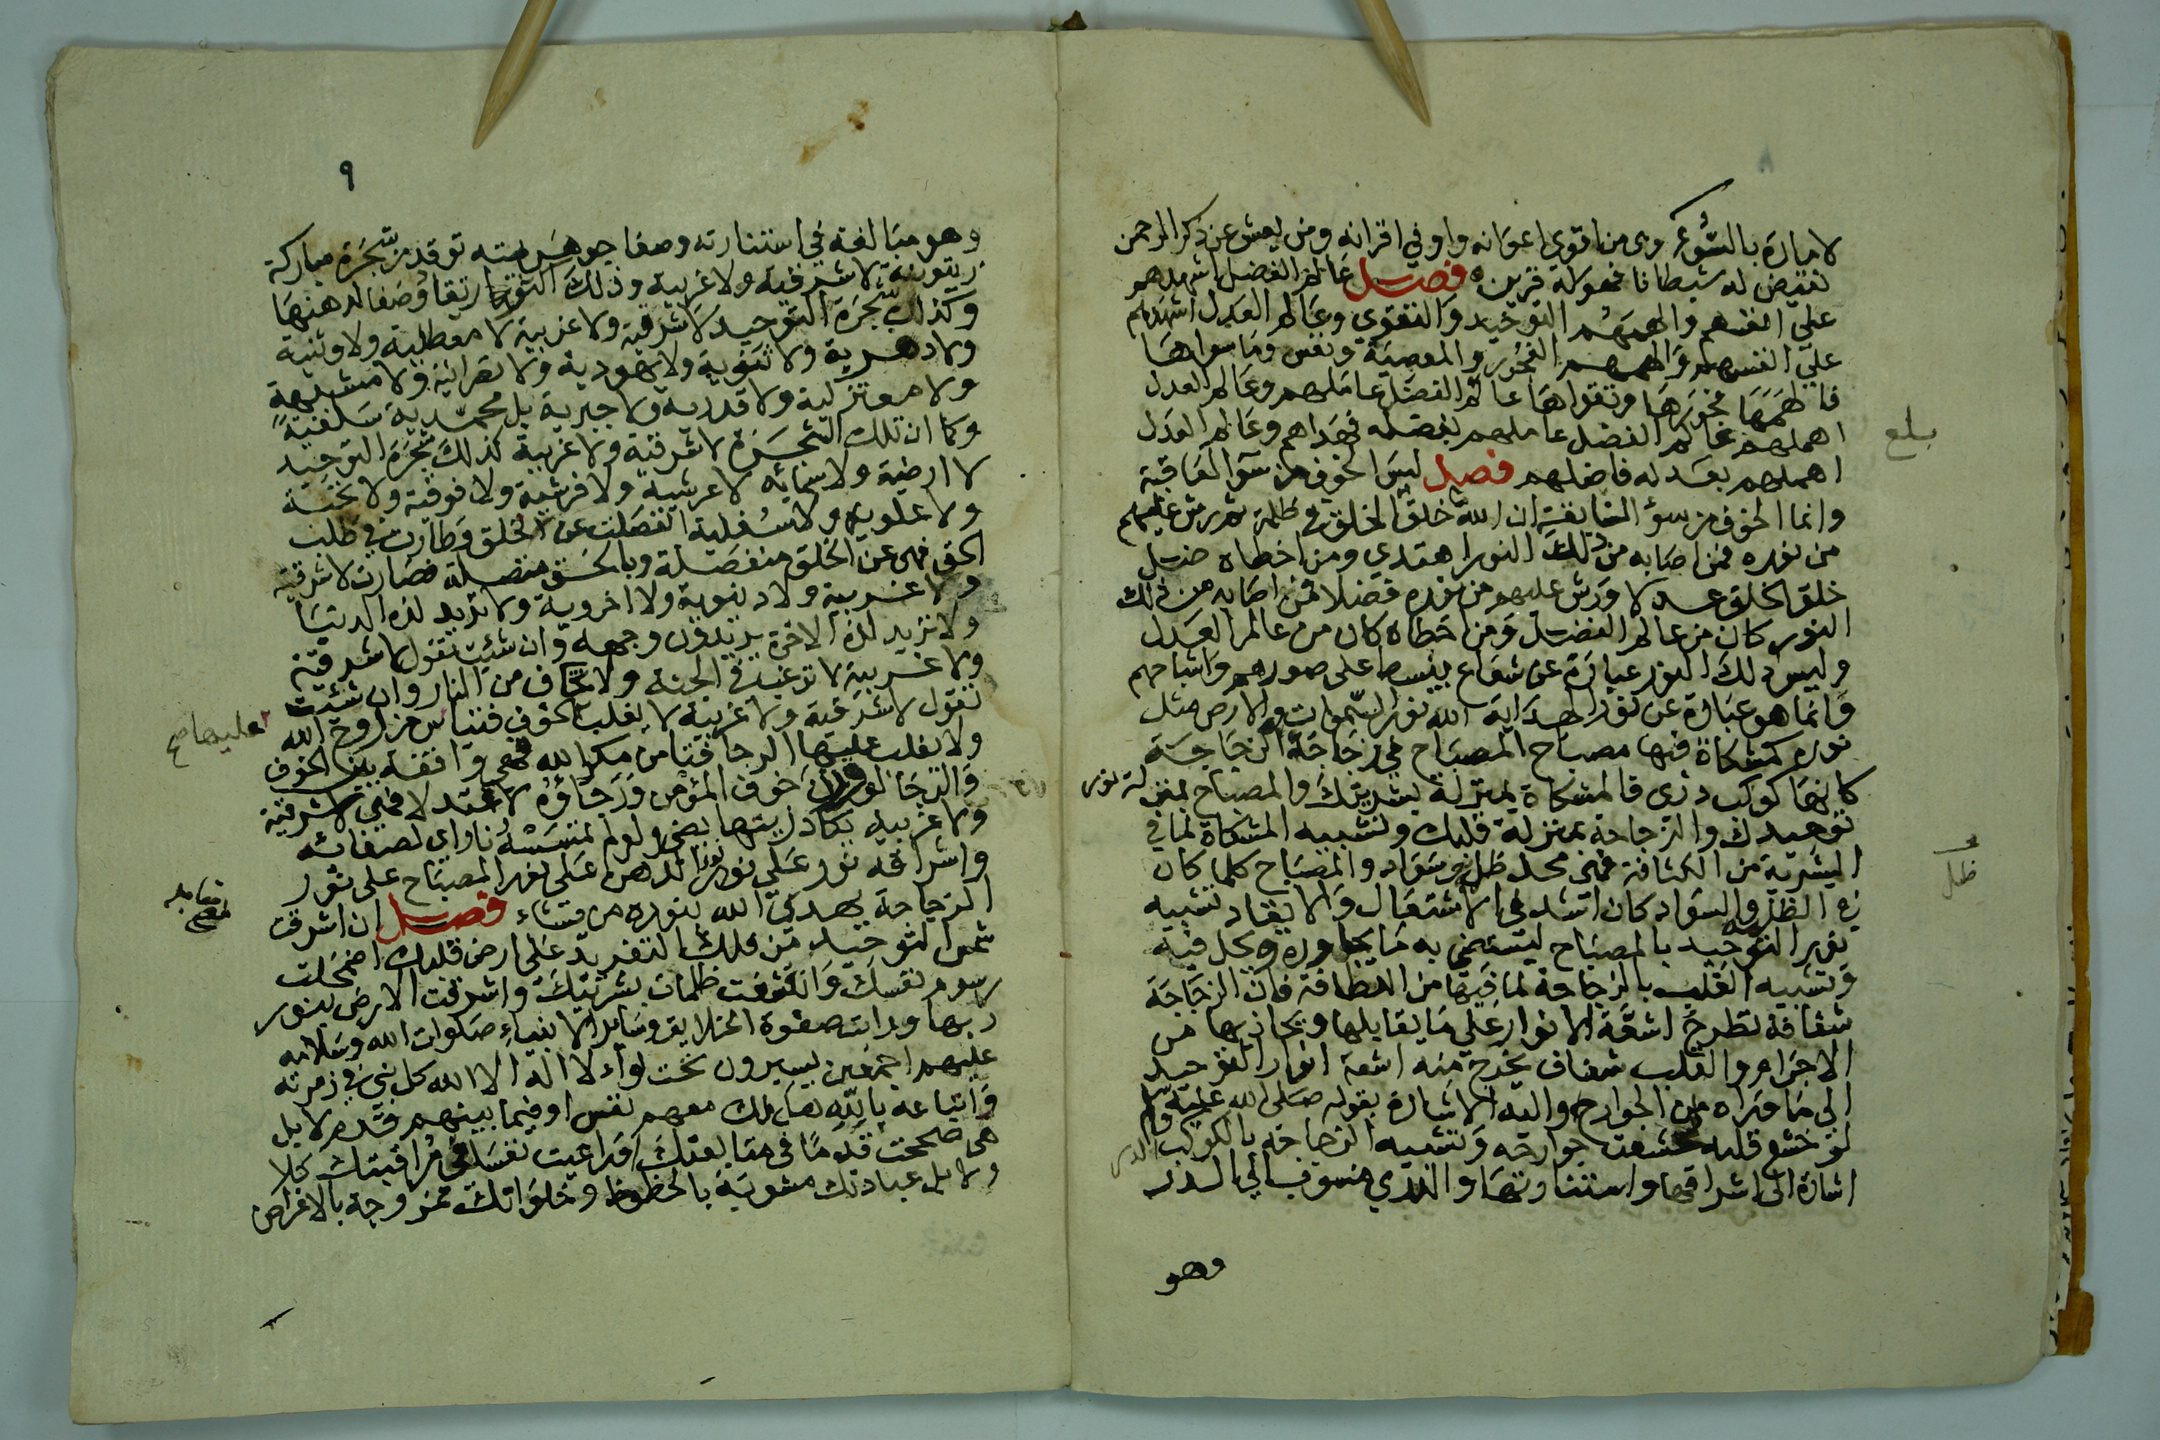 لامارة بالسوء وى من اقوى اعوانه واوفي اقرانه ومن يعش عن ذكر الرحمن
نقيض له شيطانا فهو له قرين فصل عالم الفضل اشهدهم
على انفسهم والهمهم التوحيد والتقوى وعالم العدل اشهدهم
على انفسهم والهمهم الفجور والمعصية ونفس وما سواها
فالهمها فجورها وتقواها عالم الفضل عاملهم وعالم العدل
اهملهم عالم الفضل عاملهم بفضله فهداهم وعالم العدل
اهملهم بعدله فاضلهم فصل ليس الخوف من سوء العاقبة
وانما الخوف من سوء السابقة ان الله خلق الخلق في ظلمة ثم رش عليهم
من نوره فمن اصابه من ذلك النور اهتدى ومن اخطاه ضل
خلق الخلق عدلا ورش عليهم من نوره فضلا فمن اصابه من ذلك
النور كان من عالم الفضل ومن اخطاه كان من عالم العدل
وليس ذلك النور عبارة عن شعاع ينبسط على صورهم واشباحهم
وانما هو عبارة عن نور الهداية الله نور السموات والارض مثل
نوره كمشكاة فيها مصباح المصباح في زجاجة الزجاجة
كانها كوكب درى فالمشكاة بمنزلة بشريتك والمصباح بمنزلة نور
توحيدك والزجاجة بمنزلة قلبك وتشبيه المشكاة لما في
البشرية من الكثافة فهى محل ظل وسواد والمصباح كلما كان
في الظل والسواد كان اشد في الاشتعال والايقاد تشبيه
نور التوحيد بالمصباح ليستضي به ما يجاوره ويحل فيه
وتشبيه القلب بالزجاجة لما فيها من اللطافة فان الزجاجة
شفافة تطرح اشعة الانوار على ما يقابلها ويحاذيها من
الاجرام والقلب شفاف يخرج منه اشعة انوار التوحيد
الى ما وراه من الجوارح واليه الاشارة بقوله صلى الله عليه وسلم
لو خشع قلبه لخشعت جوارحه وتشبيه الزجاجة بالكوكب الدرى
اشارة الى اشراقها واستنارتها والدري منسوب الى الدر
وهو
بلغ
ظل
٩
وهو مبالغة في استنارته وصفا جوهريته توقد من شجرة مباركة
زيتونة لا شرقية ولا غربية وذلك التور ارتقا وصفا لدهنها
وكذلك شجرة التوحيد لا شرقية ولا غربية لا معطلية ولا وثنية
ولا دهرية ولا ثنوية ولا يهودية ولا نصرانية ولا مشبهة
ولا معتزلية ولا قدرية ولا جبرية بل محمدية سلفية
وكما ان تلك الشجرة لا شرقية ولا غربية كذلك شجرة التوحيد
لا ارضية ولا سمائيه لا عرشية ولا فرشية ولا فوقية ولا تحتية
ولا علويه ولا سفلية انفصلت عن الخلق وطارت في طلب
الحق فهى عن الخلق منفصلة وبالحق متصلة فصارت لا شرقية
ولا غربية ولا دنيوية ولا اخروية ولا تريد لذة الدنيا
ولا تريد لذة الاخرة يريدون وجهه وان شئت تقول لا شرقية
ولا غربية لا ترغب في الجنة ولا تخاف من النار وان شئت
تقول لا شرقية ولا غربية لا يغلب الخوف فتياس من روح الله
ولا يغلب عليها الرجا فتامن مكر الله فهي واقفة بين الخوف
والرجا لو وزن خوف المؤمن ورجاؤه لاعتدلا فهي لا شرقية
ولا غربيه يكاد زيتها يضي ولو لم تمسسه نار اى لصفائه
واشراقه نور على نور نور الدهن على نور المصباح على نور
الزجاجة يهدي الله لنوره من يشاء فصل ان اشرقت
شمس التوحيد من فلك التفريد على ارض قلبك اضمحلت
رسوم نفسك وانكشفت ظلمات بشريتك واشرقت الارض بنور
ربها ورايت صفوة الخلايق وساير الانبياء صلوات الله وسلامه
عليهم اجمعين يسيرون تحت لواء لا اله الا الله كل نبي في زمرته
واتباعه بالله هل لك معهم نفس او فيما بينهم قدم لا بل
هى صححت قدما في متابعتك اوراعيت نفسا في مراقبتك كلا
ولا بل عبادتك مشوبة بالحظوظ وخلواتك ممزوجة بالاغراض
عليها صح